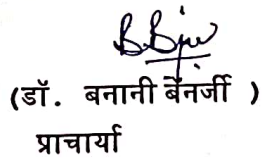 (डॉ. बनानी बेनर्जी )
प्राचार्या